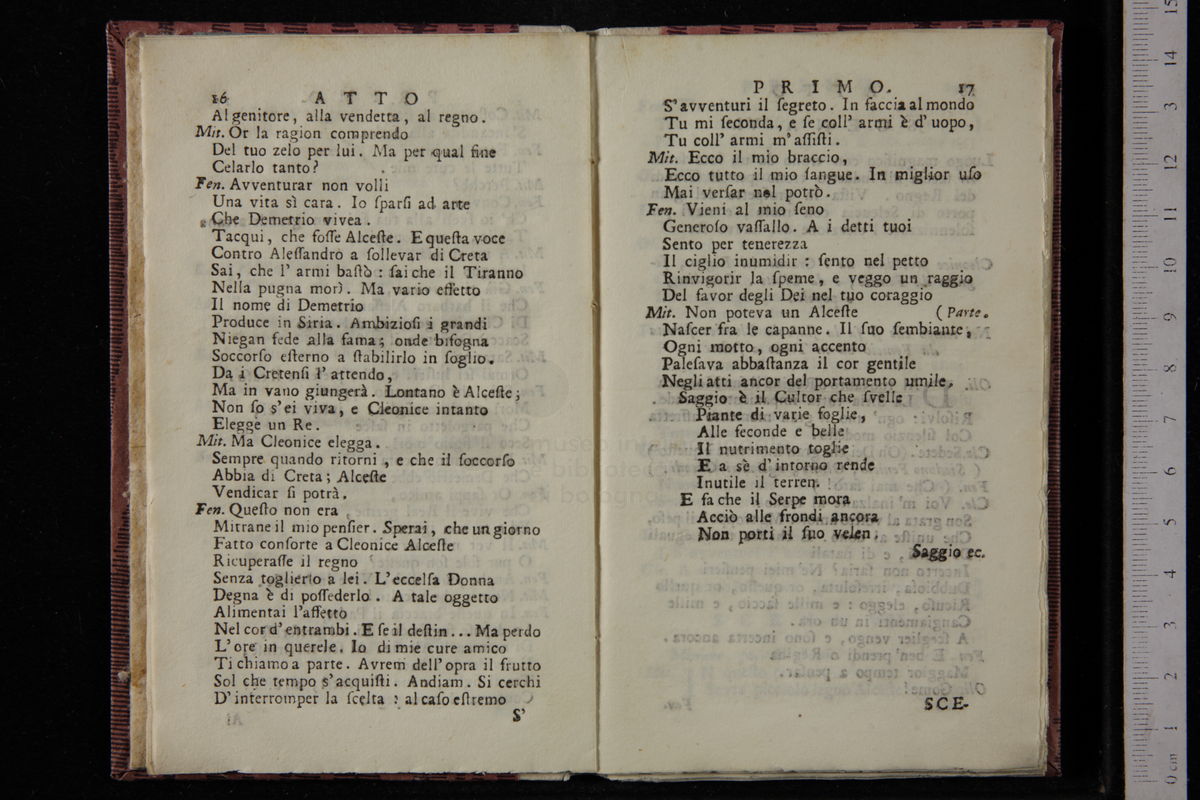 16 ATTO
Al genitore, alla vendetta, al regno.
Mit. Or la ragion comprendo
Del tuo zelo per lui. Ma per qual fine
Celarlo tanto?
Fen. Avventurar non volli
Una vita sì cara. Io ſparſi ad arte
Che Demetrio vivea.
Tacqui, che foſſe Alceſte. E queſta voce
Contro Aleſſandro a ſollevar di Creta
Sai, che l' armi baſtò: ſai che il Tiranno
Nella pugna morì. Ma vario effetto
Il nome di Demetrio
Produce in Siria. Ambizioſi i grandi
Niegan fede alla fama; onde biſogna
Soccorſo eſterno a ſtabilirlo in ſoglio.
Da i Cretenſi l' attendo,
Ma in vano giungerà. Lontano è Alceſte;
Non ſo s' ei viva, e Cleonice intanto
Elegge un Re.
Mit. Ma Cleonice elegga.
Sempre quando ritorni, e che il ſoccorſo
Abbia di Creta; Alceſte
Vendicar ſi potrà.
Fen. Queſto non era
Mitrane il mio penſier. Sperai, che un giorno
Fatto conſorte a Cleonice Alceſte
Ricuperaſſe il regno
Senza toglierlo a lei. L' eccelſa Donna
Degna è di poſſederlo. A tale oggetto
Alimentai l'affetto
Nel cor d' entrambi. E ſe il deſtin... Ma perdo
L' ore in querele. Io di mie cure amico
Ti chiamo a parte. Avrem dell' opra il frutto
Sol che tempo s' acquiſti. Andiam. Si cerchi
D' interromper la ſcelta: al caſo eſtremo
S'
PRIMO. 17
S' avventuri il ſegreto. In faccia al mondo
Tu mi ſeconda, e ſe coll' armi è d' uopo,
Tu coll' armi m' aſſiſti.
Mit. Ecco il mio braccio,
Ecco tutto il mio ſangue. In miglior uſo
Mai verſar nol potrò.
Fen. Vieni al mio ſeno
Generoſo vaſſallo. A i detti tuoi
Sento per tenerezza
Il ciglio inumidir: ſento nel petto
Rinvigorir la ſpeme, e veggo un raggio
Del favor degli Dei nel tuo coraggio
Mit. Non poteva un Alceſte (Parte.
Naſcer fra le capanne. Il ſuo ſembiante,
Ogni motto, ogni accento
Paleſava abbaſtanza il cor gentile
Negli atti ancor del portamento umile.
Saggio è il Cultor che ſvelle
Piante di varie foglie,
Alle feconde e belle
Il nutrimento toglie
E a sè d' intorno rende
Inutile il terren.
E fa che il Serpe mora
Acciò alle frondi ancora
Non porti il ſuo velen.
Saggio ec.
SCE-